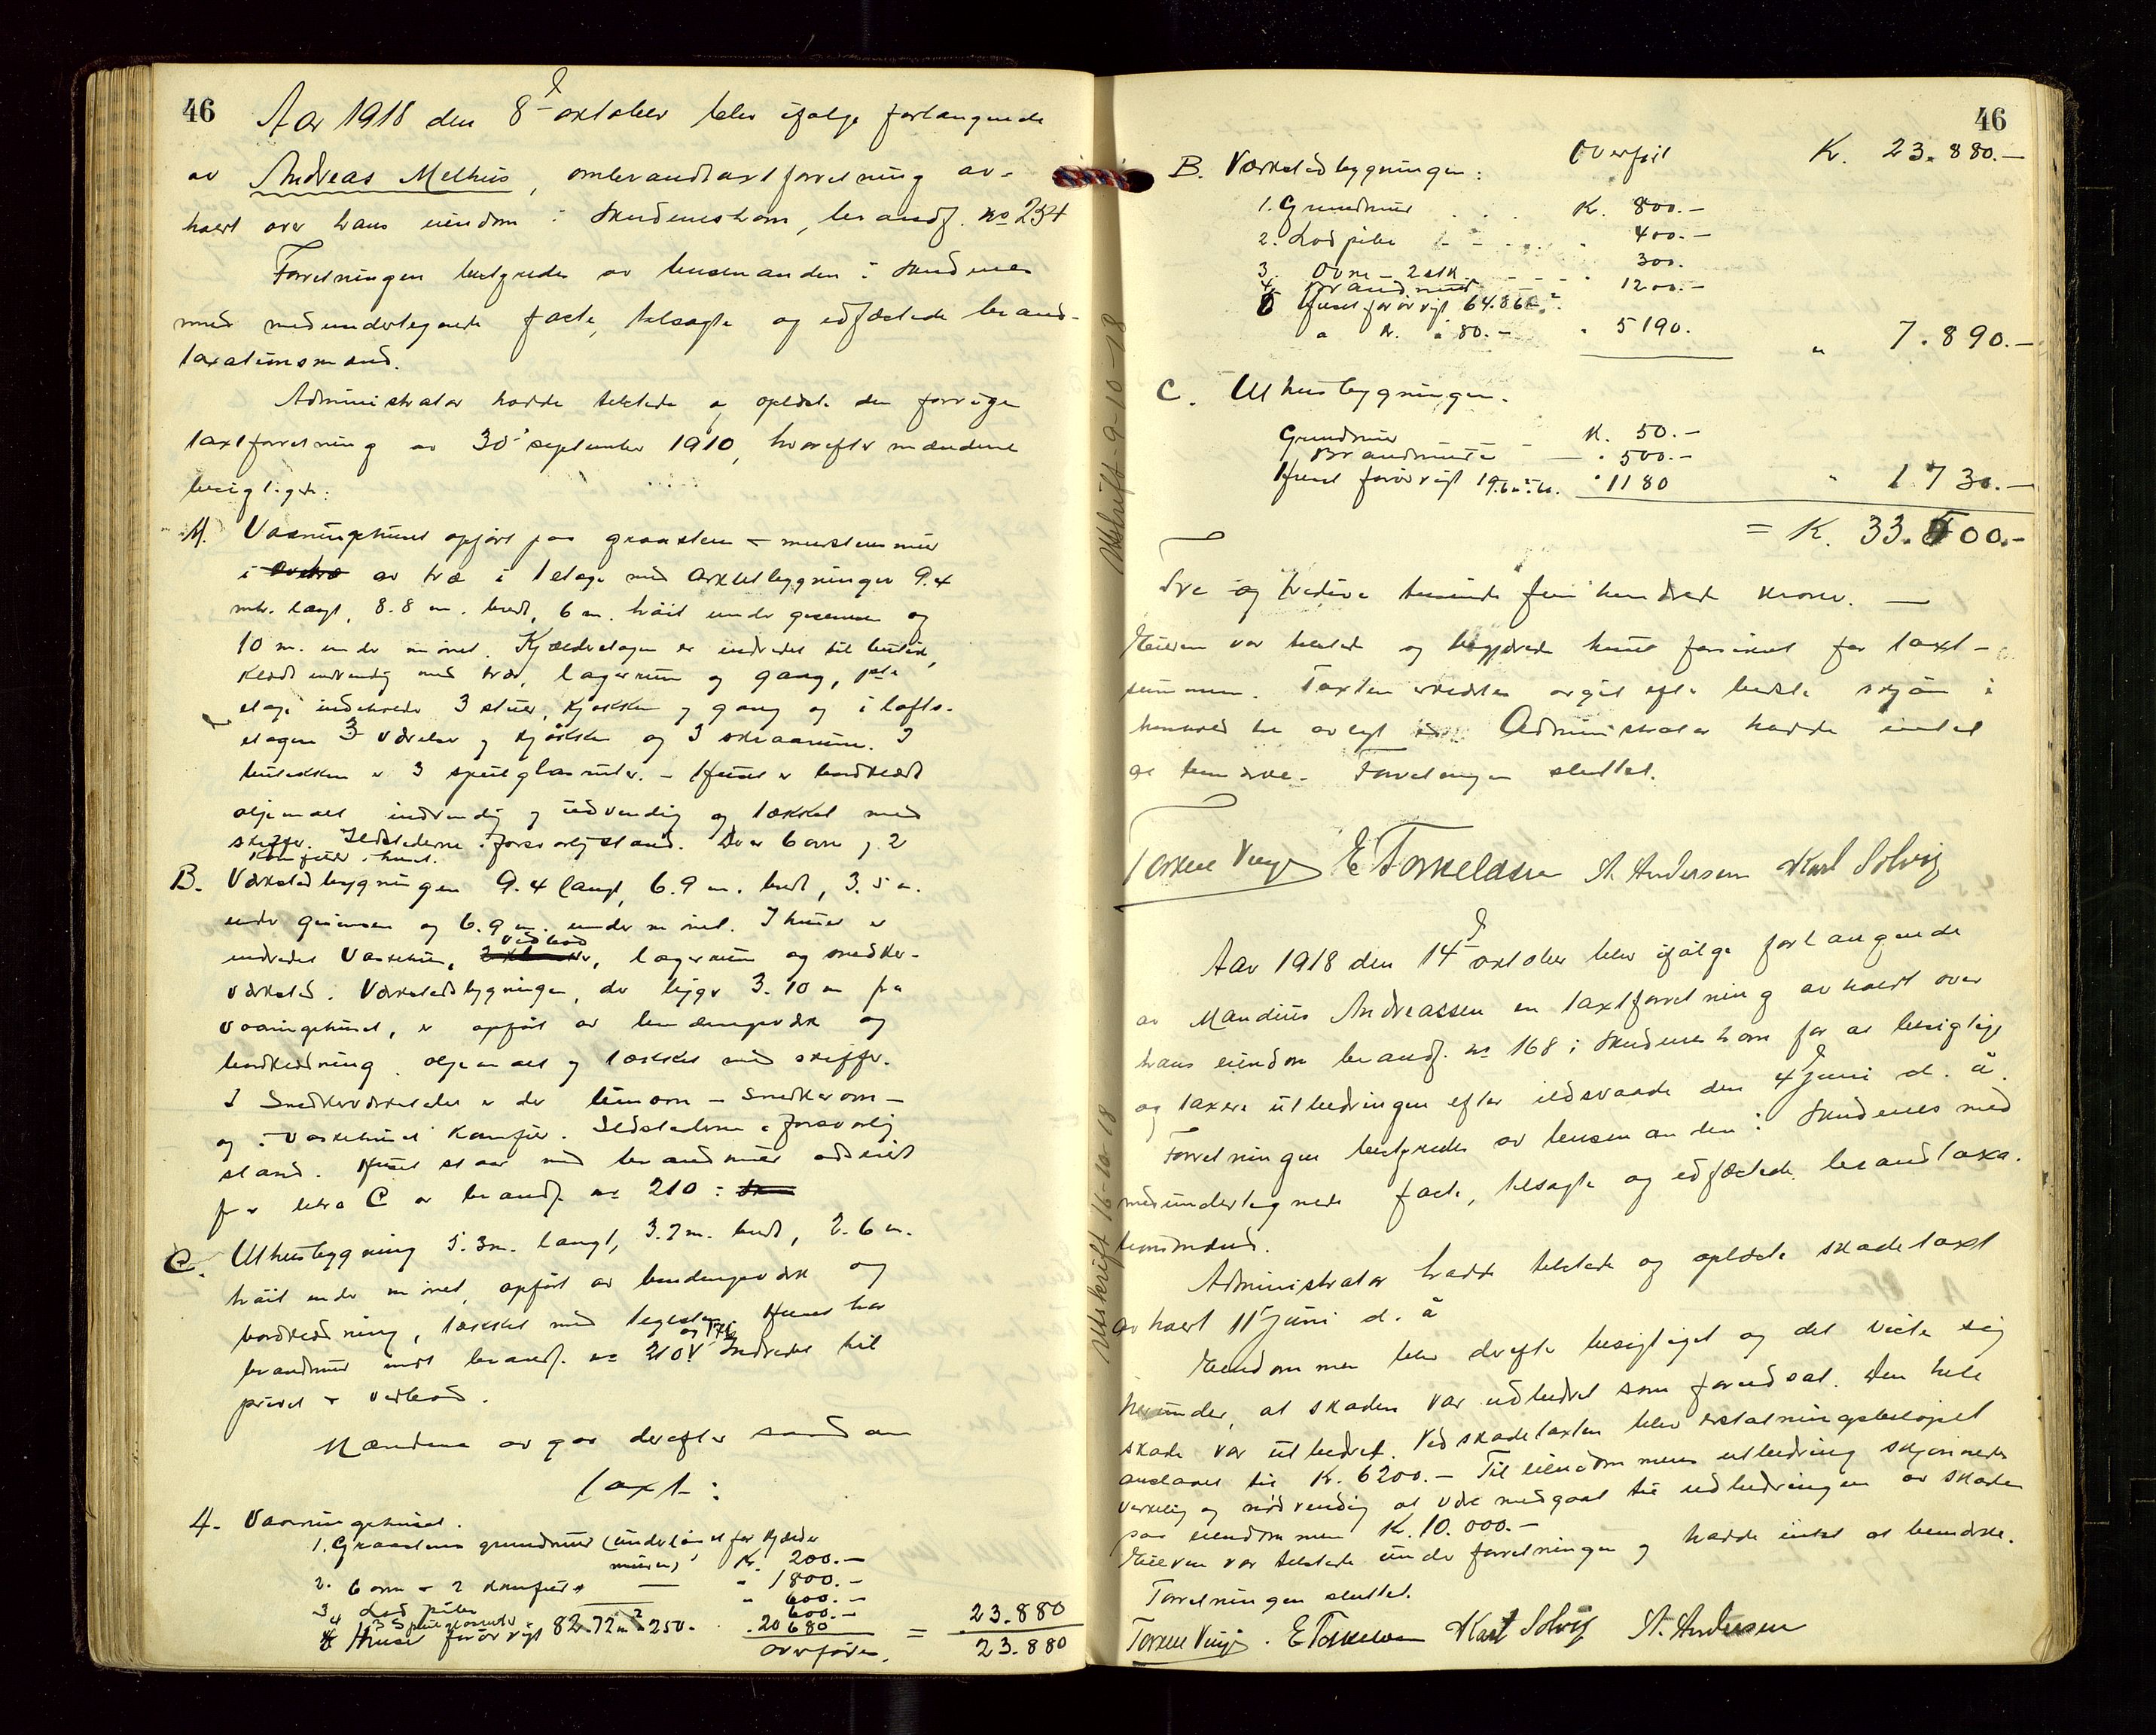 46
Aar 1918 den 8de oktober blev ifølge forlangende
av Andreas Melhus, ombrandtaxtforretning av-
holdt over hans eiendom i Skudeneshavn, brandf. no 234
Forretningen bestyredes av lensmanden i Skudenes
med medundertegnede faste, tilsagte og edfæstede brand-
taxationsmænd.
Administrator hadde tilstede og oplæste den forrige
taxtforretning av 30' september 1910, hvorefter mændene
besigtiget:
A. Vaaningshuset opført paa graasten & murstensmur
i av træ i 1 etage med arkbygninger 9.4
mtr. langt, 8.8 m. bredt, 6 m. høit under gesimsen og
10 m. under mønet. Kjælderetagen er indredet til butik,
klædt indvendig med træ, lagerrum og gang, 1ste
etage indeholder 3 stuer, kjøkken og gang og i lofts-
etagen 3 værelser og kjøkken og 3 skraarum. I
butikken er 3 speilglasruter. - Huset er bordklædt
oljemalt indvendig og udvendig og tækket med
skiffer. Ildstederne i forsvarlig stand. Der er 6 ovne og 2
komfurer i huset.
B. Værkstedbygningen 9.4 langt, 6.9 m. bredt, 3.5 m.
under gesimsen og 6.9 m. under mønet. I huset er
indredet vaskehus, vedbod, lagerrum og snedker-
værksted. Værkstedbygningen, der ligger 3.10 m fra
vaaningshuset, er opført av bindingsverk og
bordklædning. oljemalt og tækket med skiffer.
I Snedkerværkstedet er der limovn - snedkerovn -
og i vaskehuset komfur. Ildstederne i forsvarlig
stand. Huset staar med brandmur adskilt
fra litra C av brandf. no 210
C. Uthusbygning 5.3m. langt, 3.7m. bredt, 2.6 m.
høit under mønet, opført av bindingsværk og
bordklædning, tækket med teglsten. Huset har
brandmur mot brandf. no 210 og 176. Indredet til
privet & vedbod.
Mændene avgav derefter saadan
taxt:
A. Vaaningshuset.
1. Graastens grundmur (underlaget for kjælder
muren) K. 200.-
2. 6 ovne & 2 komfurer — " 1800.-
3. Lod piber — " 600.-
4 3 speilglasruter — 600.-
5 Huset forøvrigt 82.72 m2 à 250.- . 20 680 = 23.880
overføres. 23.880
46
Overført Kr. 23.880.-
B. Værkstedbygningen:
1. Grundmur . . . K. 800.-
2. Lodpibe - - - . 400.-
3. Ovne - 2 stk. - - - 300.
4. Brandmur " 1200.-
5 Huset forøvrigt 64.86 m2
a Kr. 80.- " 5190. " 7.890.-
C. Uthusbygningen.
Grundmur - K. 50.-
Brandmure — . 500.-
Huset forøvrigt 19.6 m2 à 60. " 1180 " 1730.-
= K. 33.500.-
Tre og tredive tusinde fem hundrede kroner. —
Eieren var tilstede og begjærede huset forsikret for taxt-
summen. Taxten erklædes avgit efter bedste skjøn i
henhold til avlagt ed. Administrator hadde intet
at bemærke. Forretningen sluttet.
E Torkelsen A. Andersen Karl Solvig
Utskrift 9-10-18
Aar 1918 den 14de oktober blev ifølge forlangende
av Mandius Andreassen en taxtforretning avholdt over
hans eiendom brandf. no 168 i Skudeneshavn for at besigtige
og taxere utbedringen efter ildsvaade den 4de juni d. å.
Forretningen bestyredes av lensmanden i Skudenes med
medundertegnede faste, tilsagte og edfæstede brandtaxa-
tionsmænd.
Administrator hadde tilstede og oplæste skadetaxt
avholdt 11' juni d. å
Eiendommen blev derefter besigtiget og det viste sig
herunder, at skaden var udbedret som forudsat. Den hele
skade var utbedret. Ved skadetaxten blev erstatningsbeløpet
anslaaet til K. 6200.- Til eiendommens utbedring skjønnedes
verkelig og nødvendig at være medgaat til udbedringen av skaden
paa eiendommen K. 10.000.-
Eieren var tilstede under forretningen og hadde intet at bemærke.
Forretningen sluttet.
E Torkelsen Karl Solvig A. Andersen
Utskrift 16-10-18